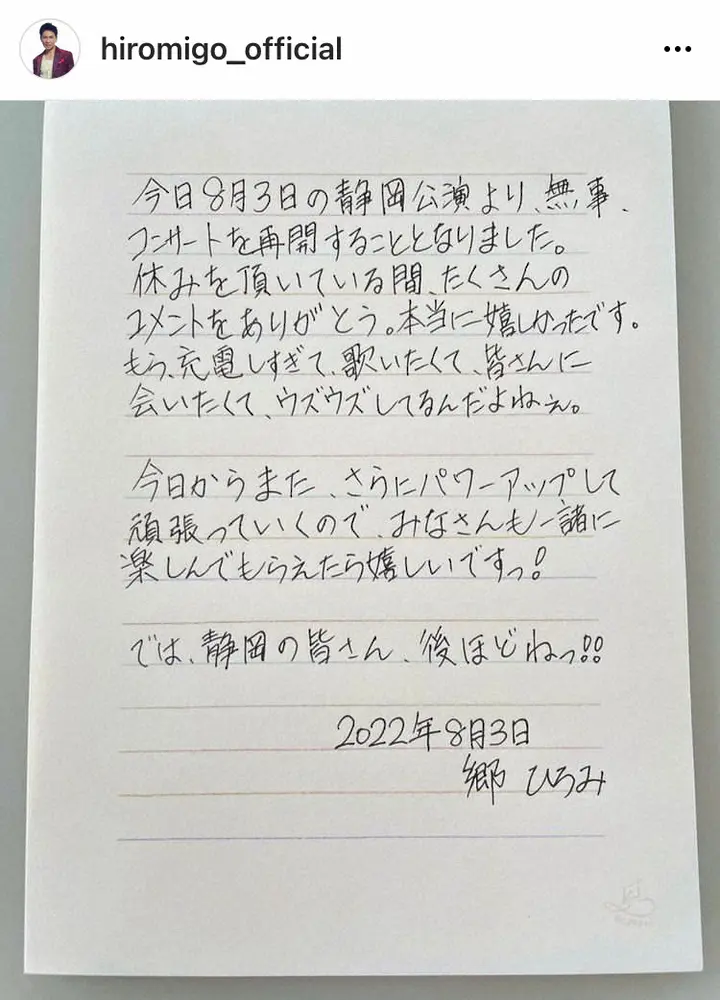 hiromigo_official
今日8月3日の静岡公演より、無事、
コンサートを再開することとなりました。
休みを頂いている間、たくさんの
コメントをありがとう。本当に嬉しかったです。
もう、充電しすぎて、歌いたくて、皆さんに
会いたくて、ウズウズしてるんだよねぇ。
今日からまた、さらにパワーアップして
頑張っていくので、みなさんも一諸に
楽しんでもらえたら嬉しいですっ!
では、静岡の皆さん、後ほどねっ!!
2022年8月3日
郷 ひろみ